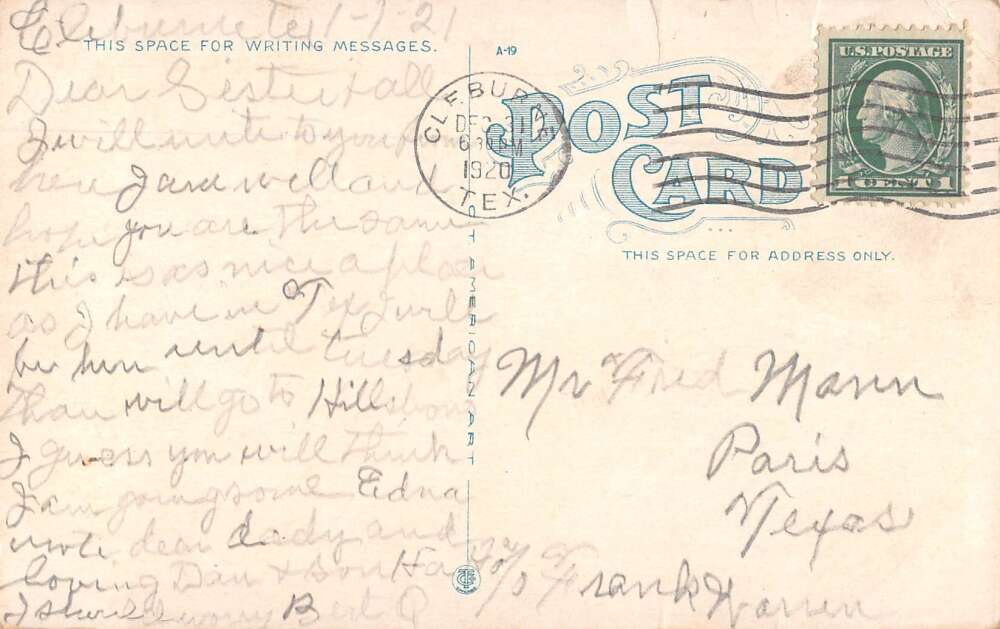 Cleburne Tex 1-1-21
THIS SPACE FOR WRITING MESSAGES.
A-19
Dear Sister & all
I will write to you from
here I am well and
hope you are the same
this is as nice a place
as I have in Tex I will
be here until Tuesday
than will go to Hillsboro
I guess you will think
I am going some Edna
wrote dear dady and
loving Dan & son
I Bert
CLEBURNE
DEC 31
6 30 PM
1920
TEX.
POST CARD
U.S. POSTAGE
1 CENT 1
THIS SPACE FOR ADDRESS ONLY.
C.T. AMERICAN ART
Mr Fred Mann
Paris
Texas
c/o Frank Warren